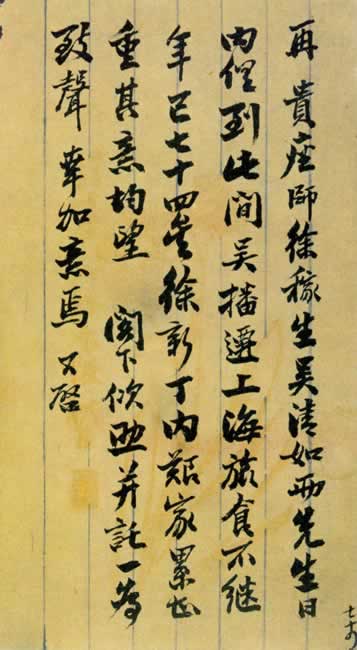 再 貴座師徐稼生吳清如兩先生日
內到此間吳播遷上海旅食不継
年已七十四矣徐新丁內艱家累甚
重其意均望 閣下佽助并託一為
致聲 幸加意焉 又啓